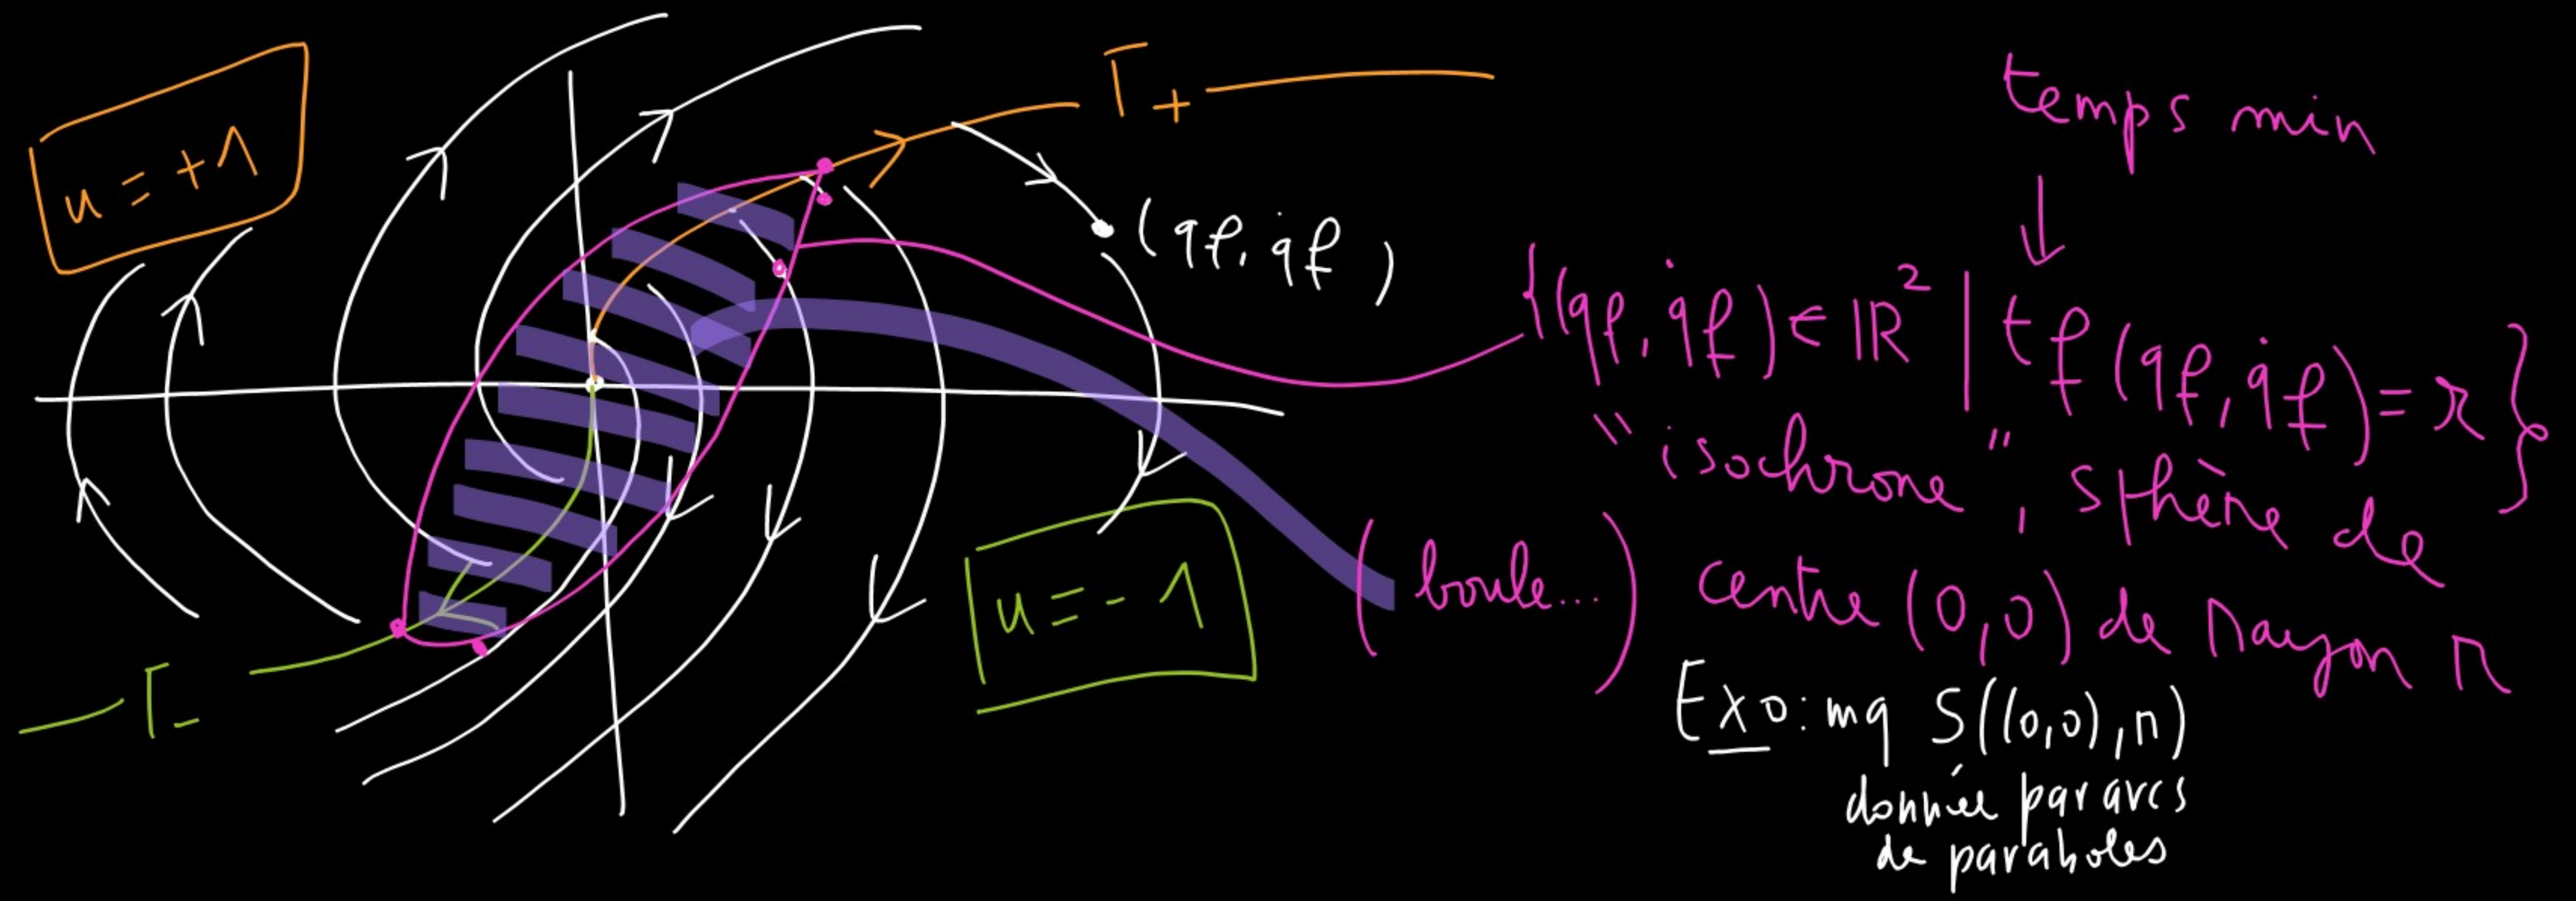 u = +1
Γ+
(qf, q̇f)
temps min
↓
{(qf, q̇f) ∈ ℝ² | tf(qf, q̇f) = r}
"isochrone", sphère de
(boule...) centre (0,0) de rayon r
u = -1
Γ-
Exo: mq S((0,0), r)
donnée par arcs
de paraboles